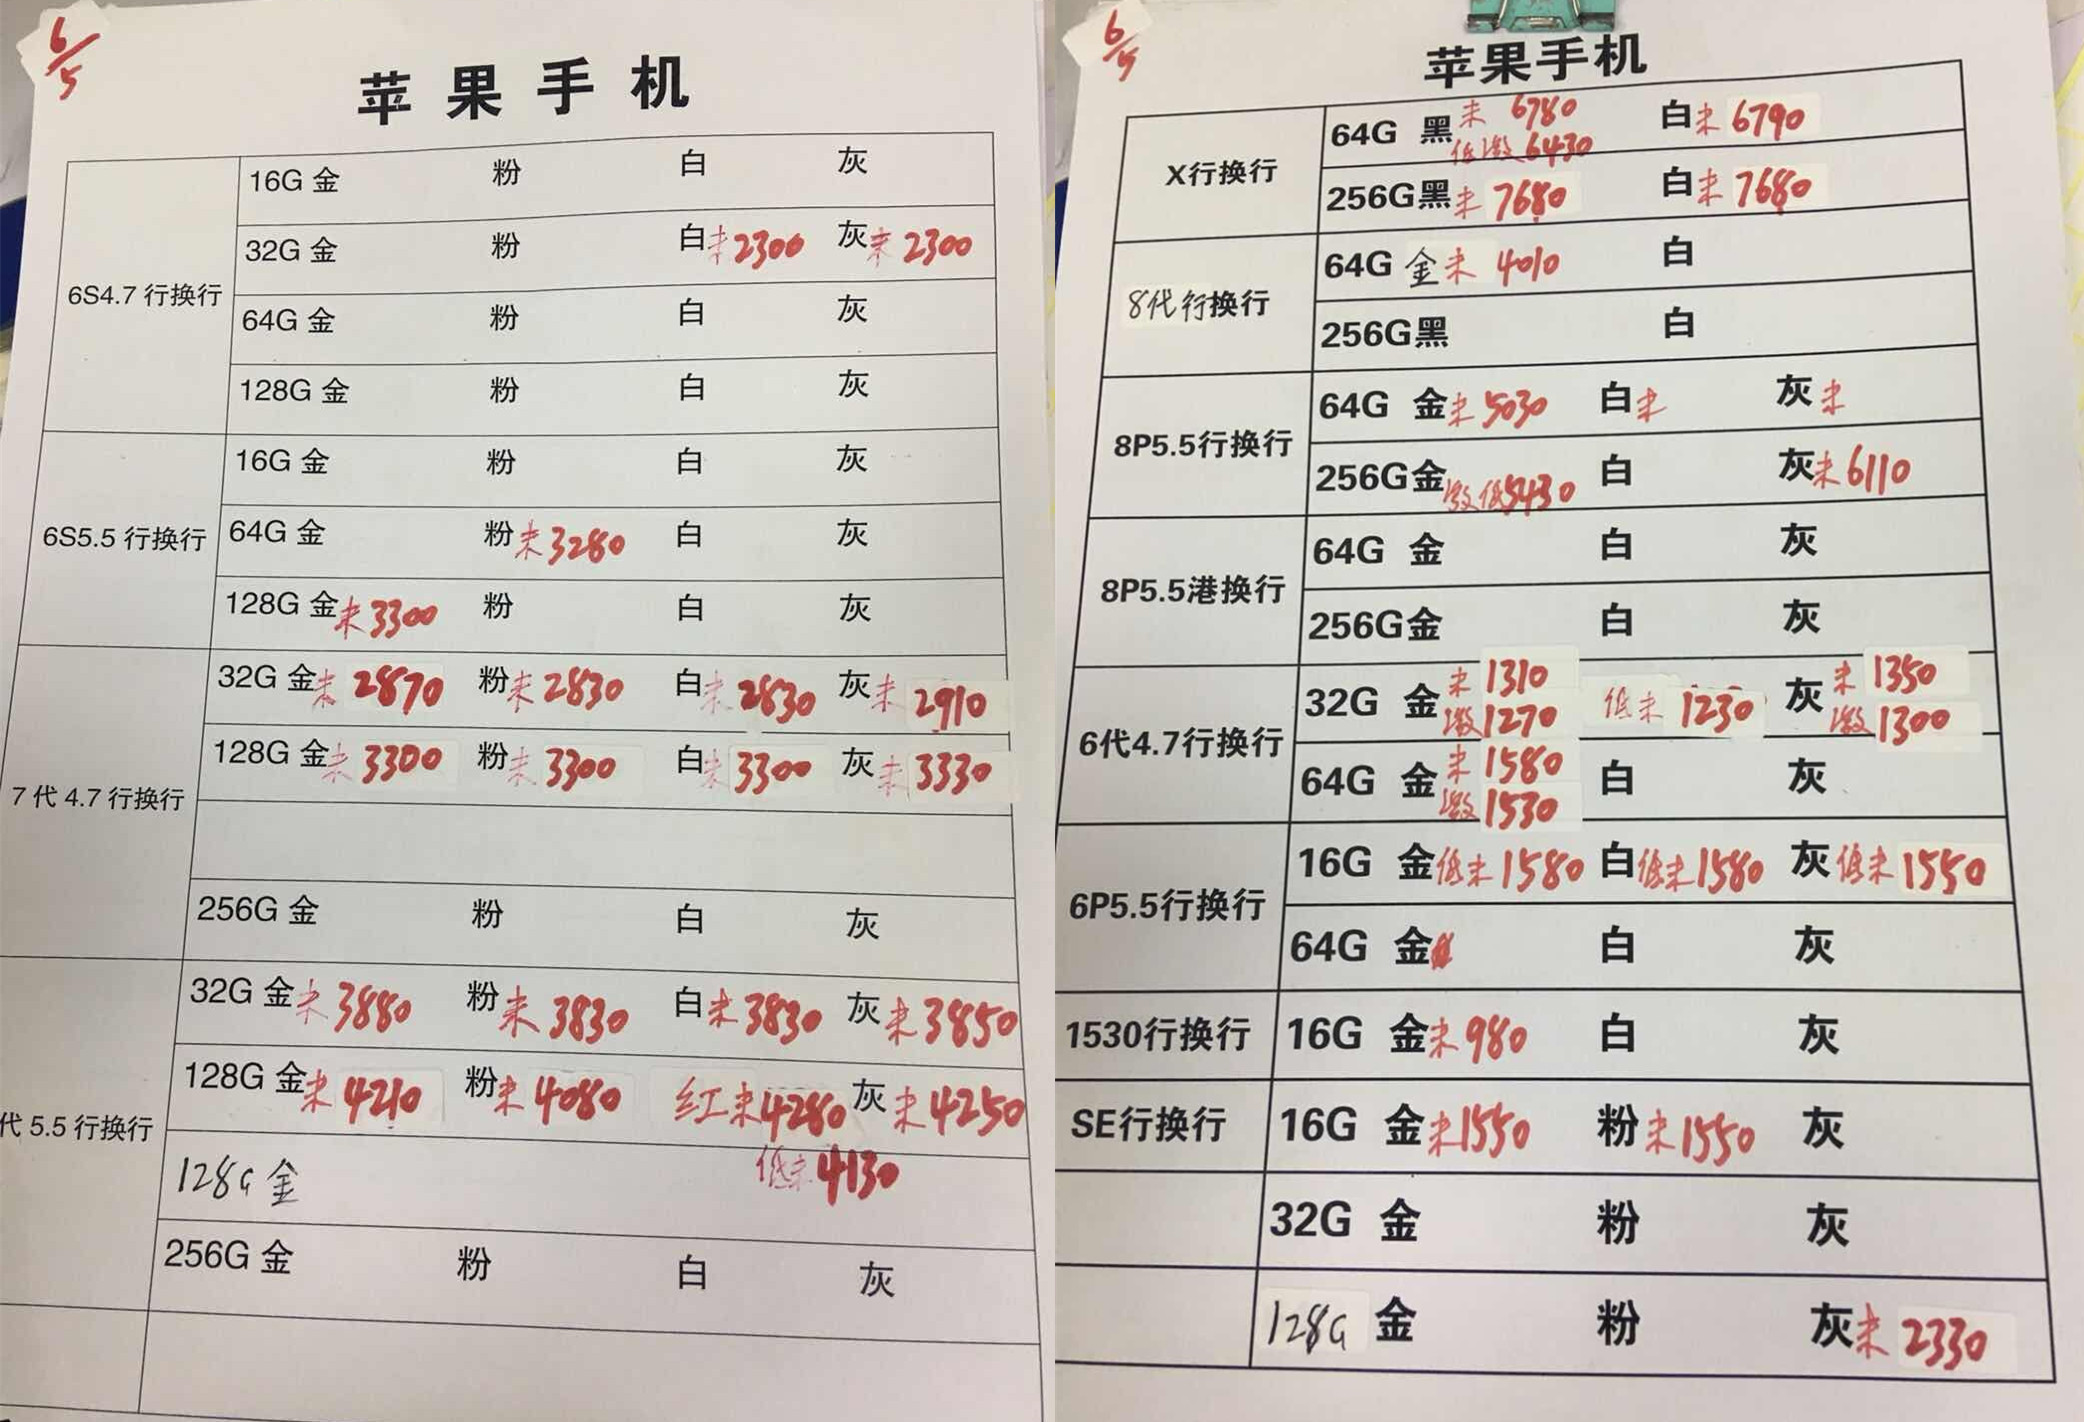 6/5
苹果手机
6S4.7行换行
16G 金 粉 白 灰
32G 金 粉 白未2300 灰未2300
64G 金 粉 白 灰
128G 金 粉 白 灰
6S5.5行换行
16G 金 粉 白 灰
64G 金 粉未3280 白 灰
128G 金未3300 粉 白 灰
7代4.7行换行
32G 金未2870 粉未2830 白未2830 灰未2910
128G 金未3300 粉未3300 白未3300 灰未3330
256G 金 粉 白 灰
代5.5行换行
32G 金未3880 粉未3830 白未3830 灰未3850
128G 金未4210 粉未4080 红未4280 灰未4250
128G 金 低未4130
256G 金 粉 白 灰
6/5
苹果手机
X行换行
64G 黑未6780 白未6790
低激6430
256G黑未7680 白未7680
8代行换行
64G 金未4010 白
256G黑 白
8P5.5行换行
64G 金未5030 白未 灰未
256G金激低5430 白 灰未6110
8P5.5港换行
64G 金 白 灰
256G金 白 灰
6代4.7行换行
32G 金未1310 低未1230 灰未1350
激1270 激1300
64G 金未1580 白 灰
激1530
6P5.5行换行
16G 金低未1580 白低未1580 灰低未1550
64G 金 白 灰
1530行换行
16G 金未980 白 灰
SE行换行
16G 金未1550 粉未1550 灰
32G 金 粉 灰
128G 金 粉 灰未2330